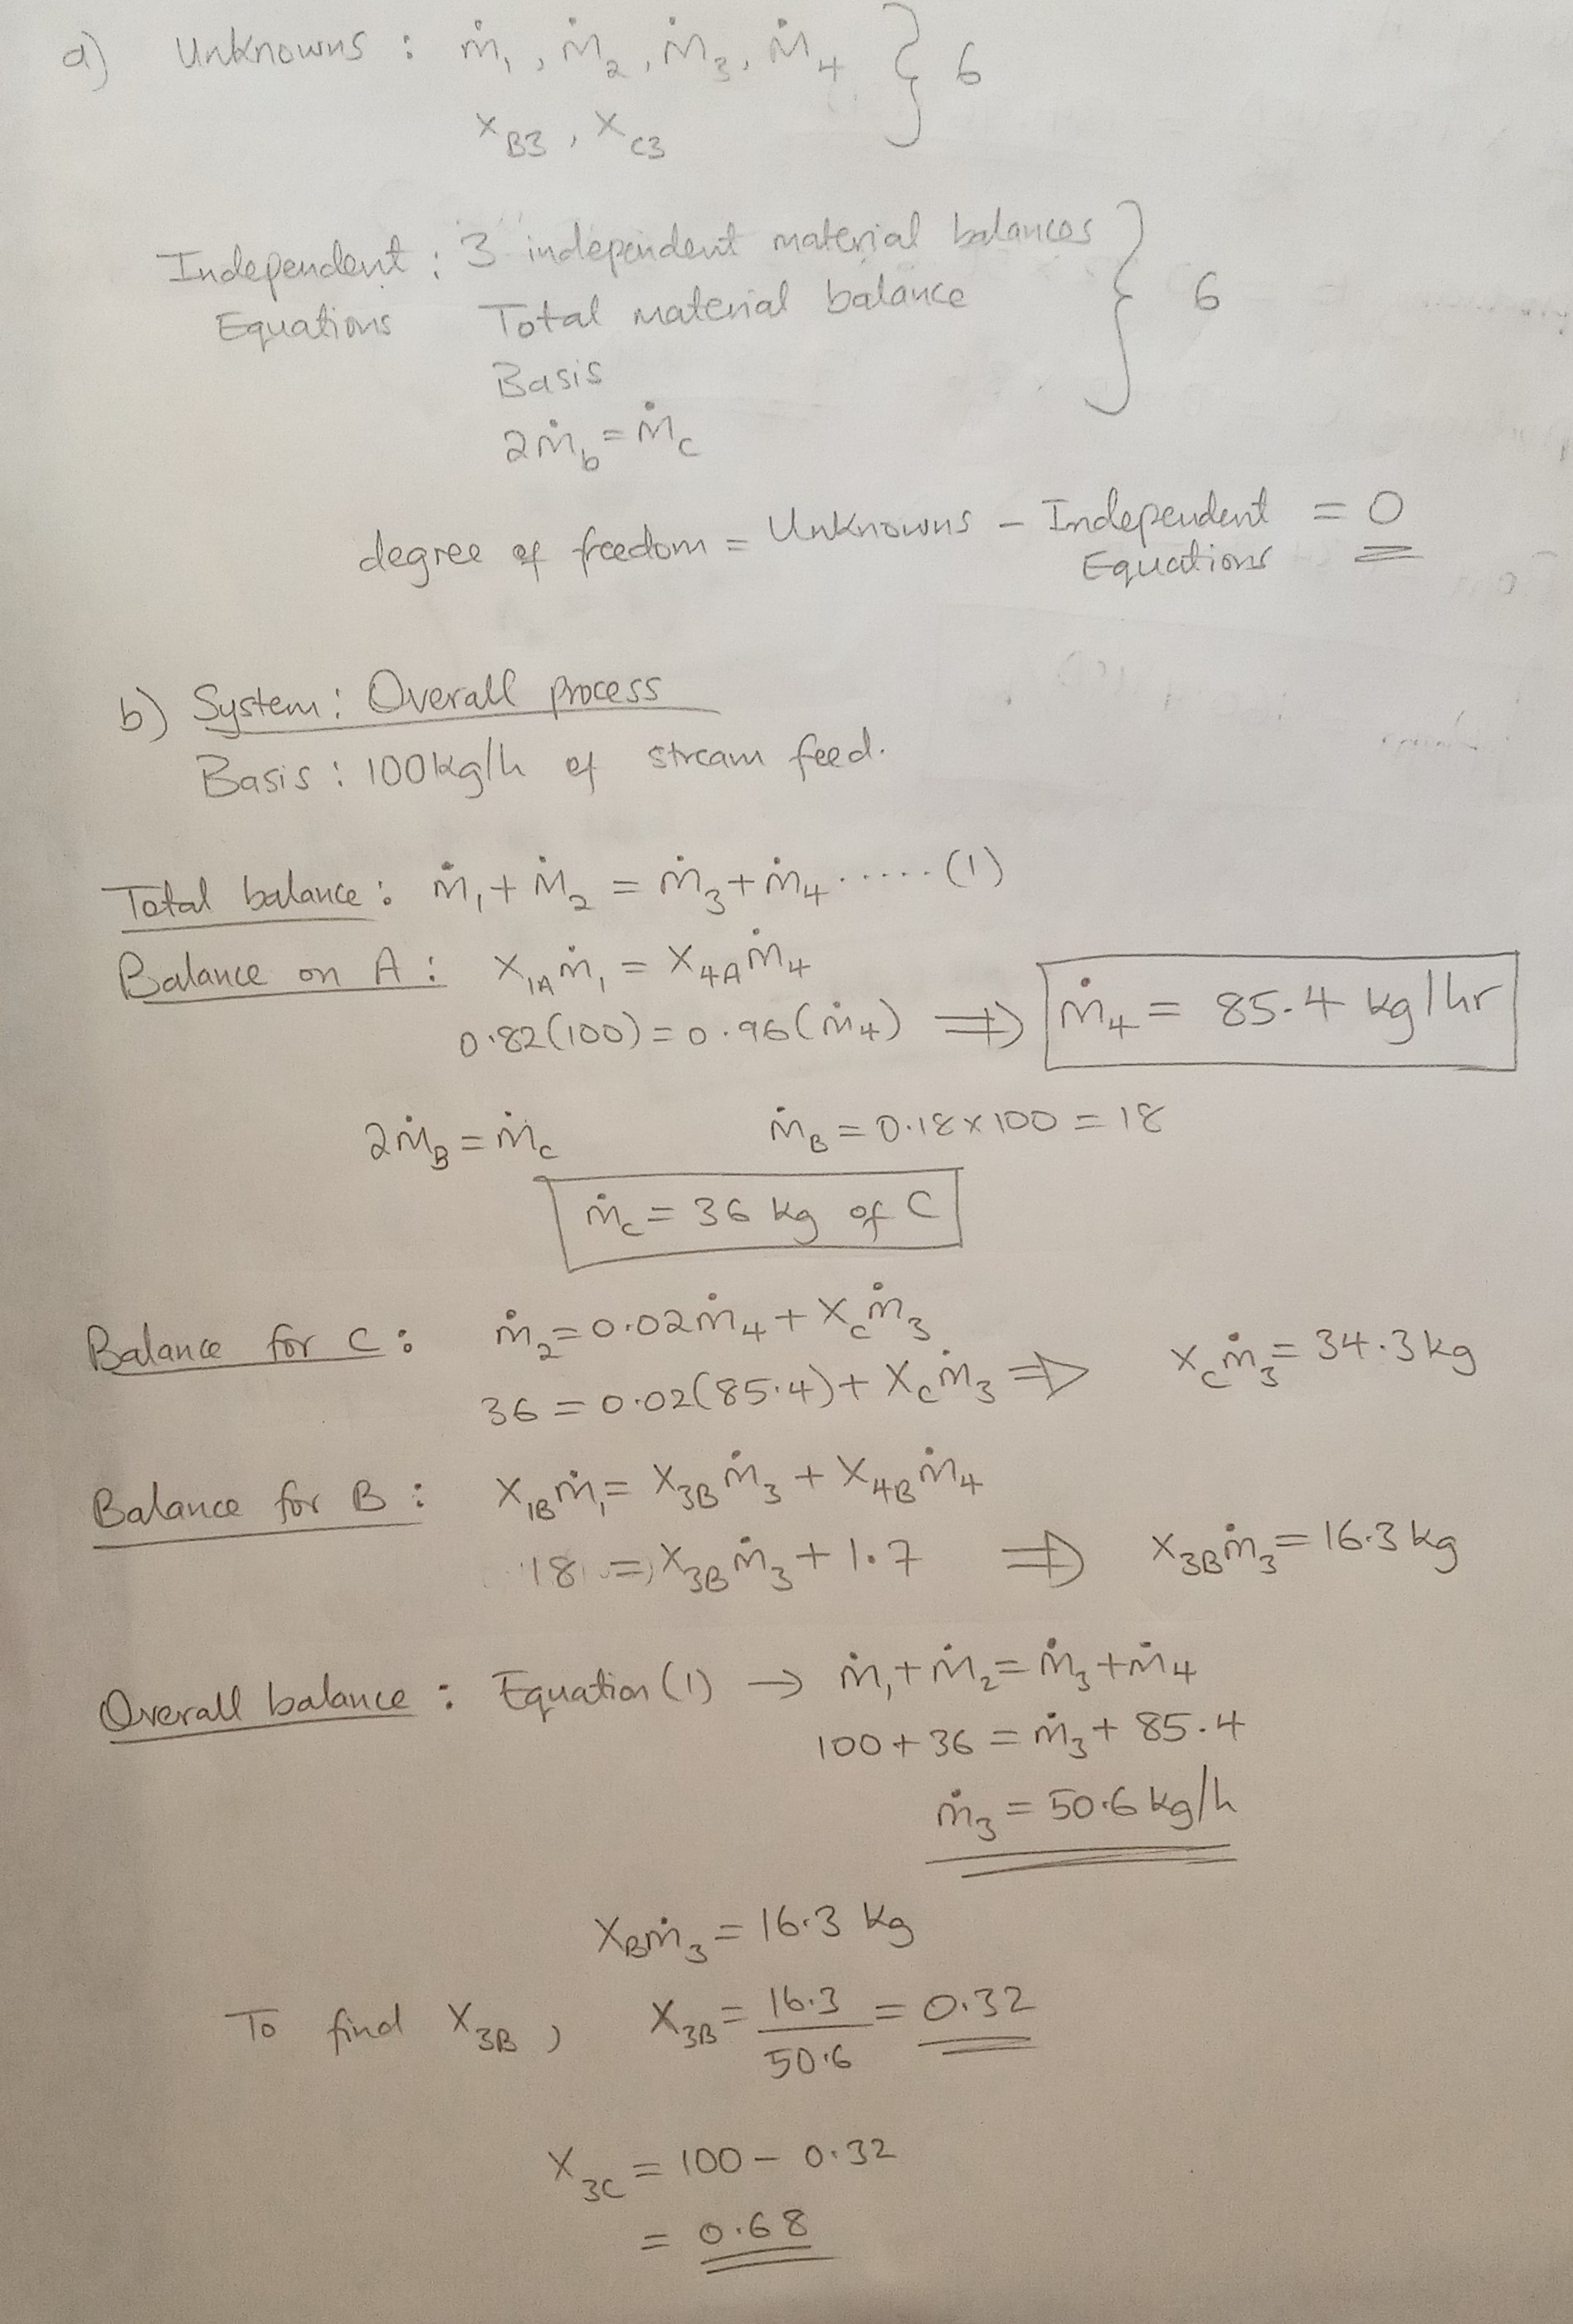 a) Unknowns : ṁ₁, ṁ₂, ṁ₃, ṁ₄ } 6
x_B3, x_C3
Independent : 3 independent material balances
Equations Total material balance } 6
Basis
2ṁ_b = ṁ_c
degree of freedom = Unknowns – Independent Equations = 0
b) System: Overall process
Basis : 100kg/h of stream feed.
Total balance: ṁ₁ + ṁ₂ = ṁ₃ + ṁ₄ ..... (1)
Balance on A : x_1A ṁ₁ = x_4A ṁ₄
0.82(100) = 0.96(ṁ₄) ⇒ ṁ₄ = 85.4 kg/hr
2ṁ_B = ṁ_c ṁ_B = 0.18 x 100 = 18
ṁ_c = 36 kg of C
Balance for C : ṁ₂ = 0.02ṁ₄ + x_c ṁ₃
36 = 0.02(85.4) + x_c ṁ₃ ⇒ x_c ṁ₃ = 34.3 kg
Balance for B : x_1B ṁ₁ = x_3B ṁ₃ + x_4B ṁ₄
18 = x_3B ṁ₃ + 1.7 ⇒ x_3B ṁ₃ = 16.3 kg
Overall balance : Equation (1) → ṁ₁ + ṁ₂ = ṁ₃ + ṁ₄
100 + 36 = ṁ₃ + 85.4
ṁ₃ = 50.6 kg/h
x_B ṁ₃ = 16.3 kg
To find x_3B, x_3B = 16.3 / 50.6 = 0.32
x_3C = 100 – 0.32
= 0.68